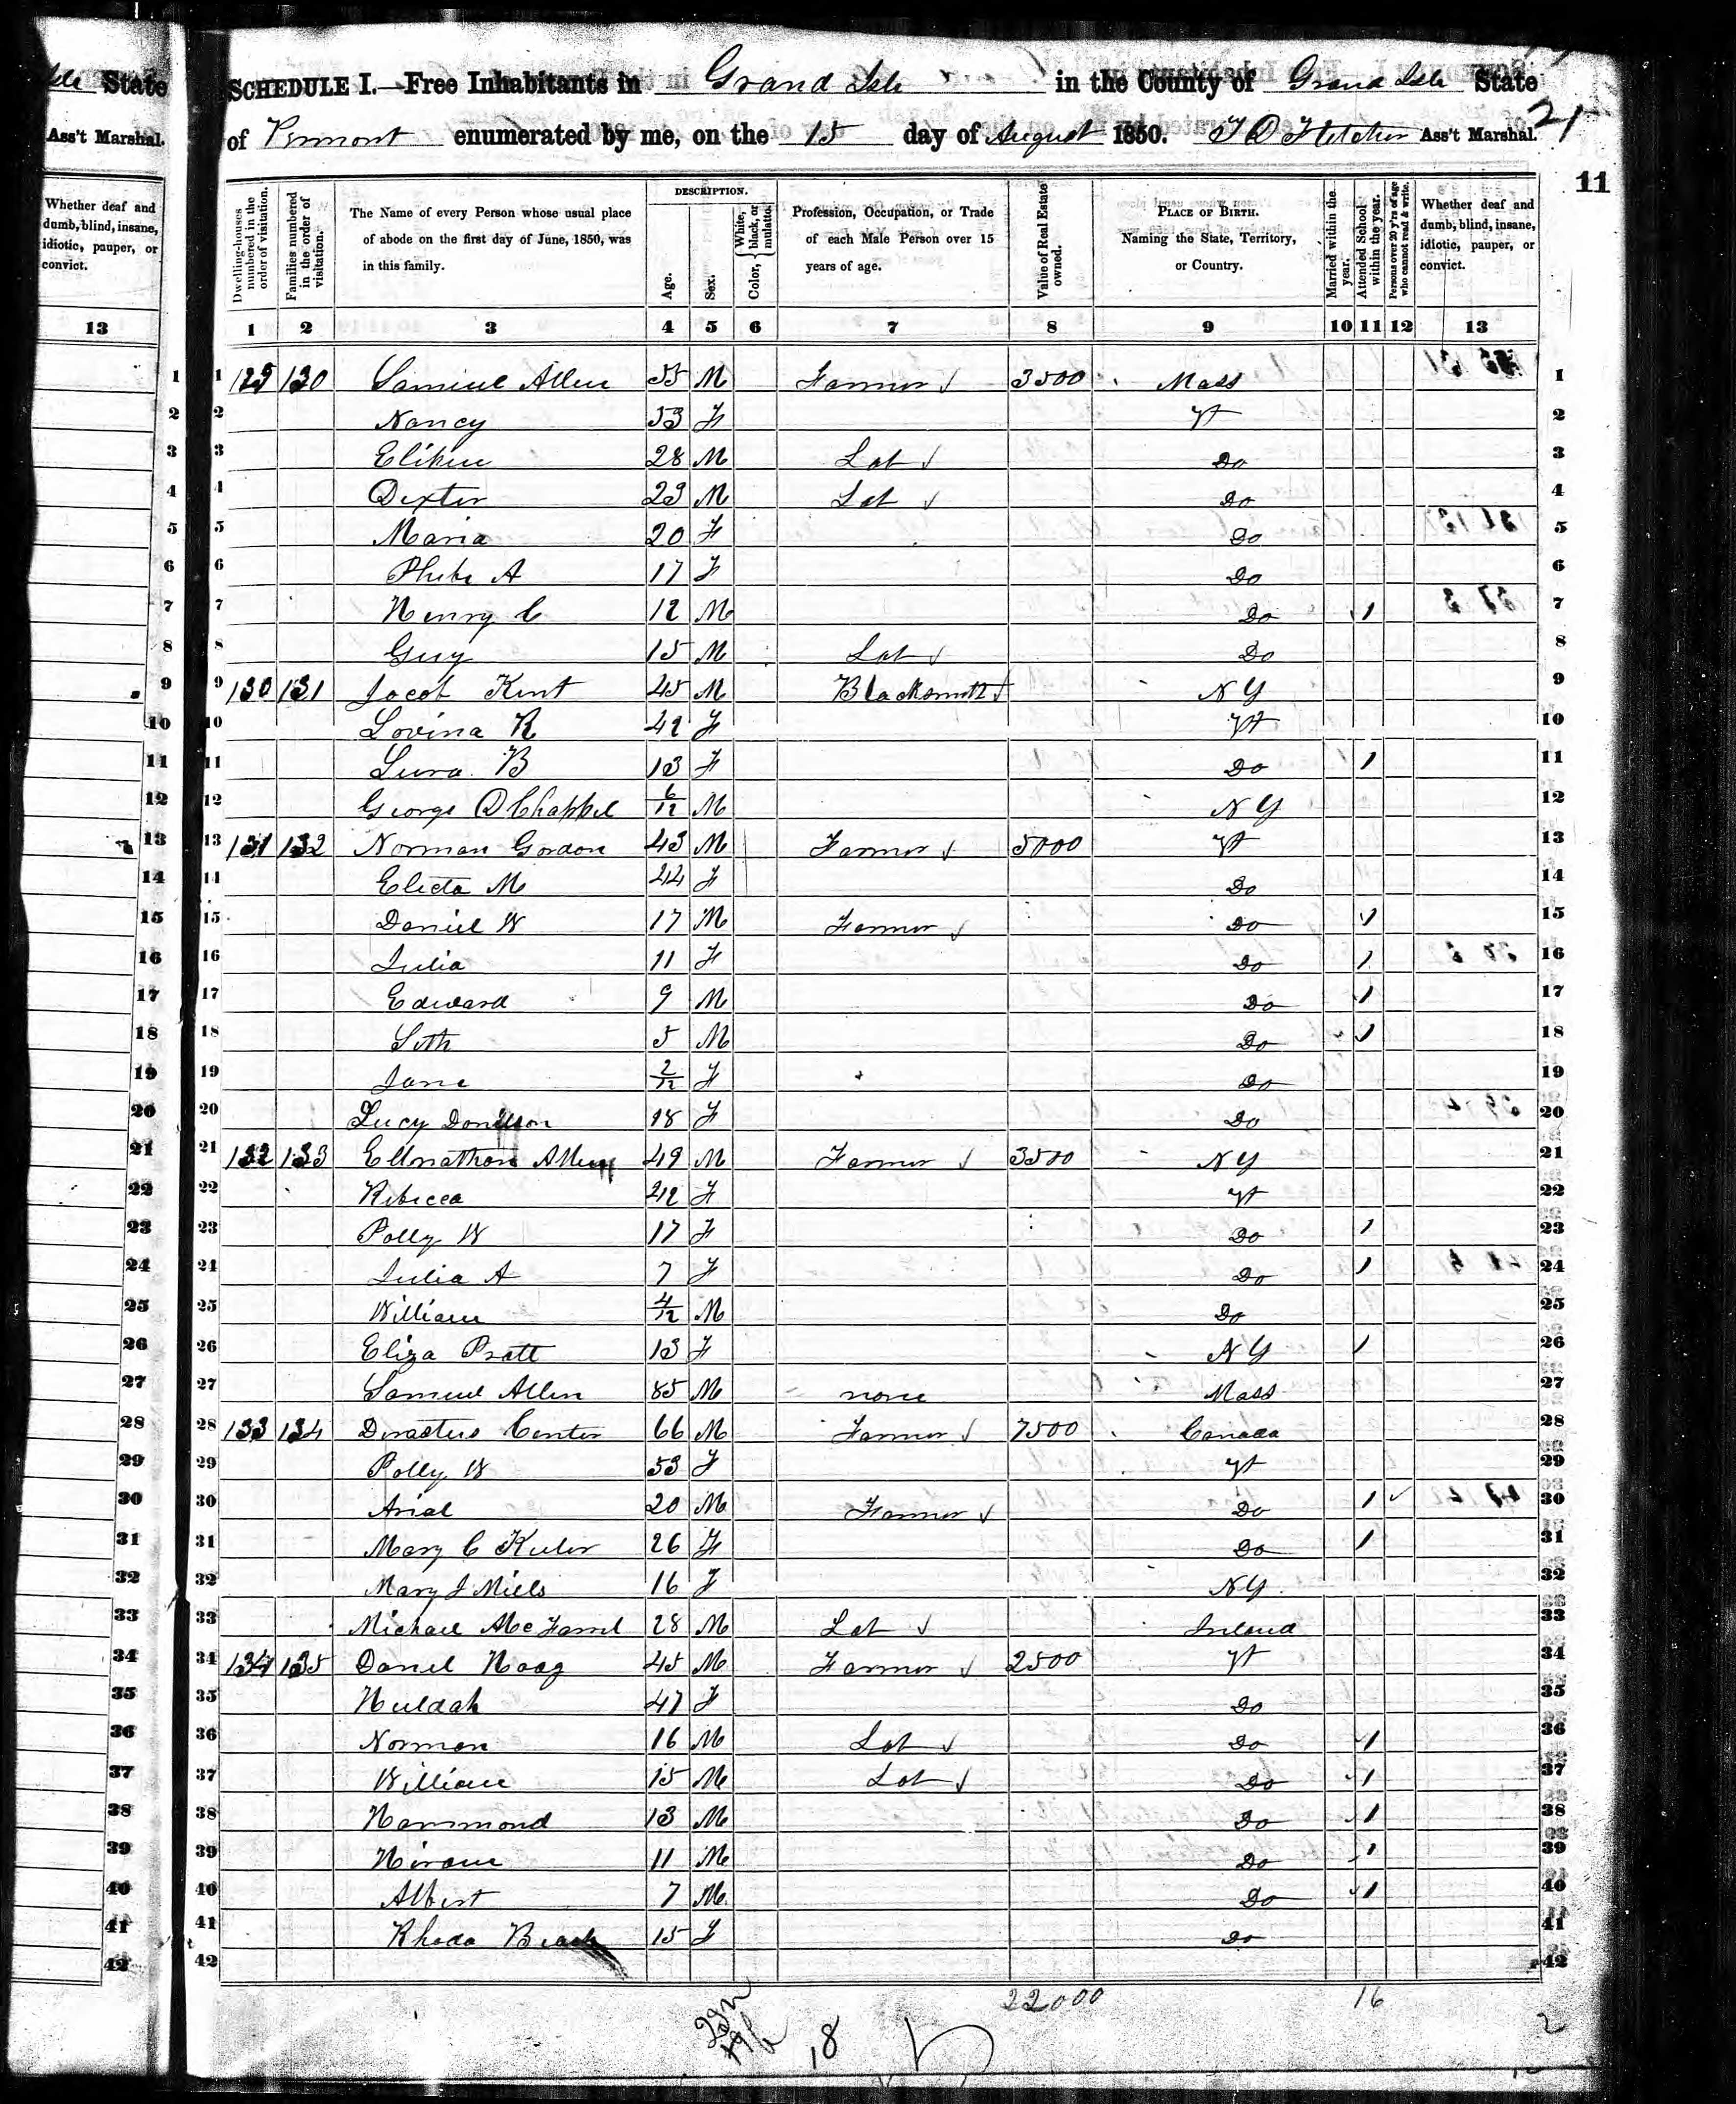 SCHEDULE I.—Free Inhabitants in Grand Isle in the County of Grand Isle State
of Vermont enumerated by me, on the 15 day of August 1850. Fletcher Ass't Marshal.
State
Ass't Marshal.
21
11
Whether deaf and dumb, blind, insane, idiotic, pauper, or convict.
13
Dwelling-houses numbered in the order of visitation.
Families numbered in the order of visitation.
The Name of every Person whose usual place of abode on the first day of June, 1850, was in this family.
DESCRIPTION.
Age.
Sex.
Color, { White, black, or mulatto.
Profession, Occupation, or Trade of each Male Person over 15 years of age.
Value of Real Estate owned.
PLACE OF BIRTH. Naming the State, Territory, or Country.
Married within the year.
Attended School within the year.
Persons over 20 y'rs of age who cannot read & write.
Whether deaf and dumb, blind, insane, idiotic, pauper, or convict.
1 2 3 4 5 6 7 8 9 10 11 12 13
1 129 130 Samuel Allen 55 M Farmer 3500 Mass 1
2 Nancy 53 F Vt 2
3 28 M Lab Do 3
4 Dexter 23 M Lab Do 4
5 Maria 20 F Do 5
6 Phebe A 17 F Do 6
7 Henry C 12 M Do 1 7
8 Guy 15 M Lab Do 8
9 130 131 Jacob Kent 45 M Blacksmith N Y 9
10 Lovina R 42 F Vt 10
11 Lura B 13 F Do 1 11
12 George D Chappel 6/12 M N Y 12
13 131 132 Norman Gordon 43 M Farmer 5000 Vt 13
14 Electa M 44 F Do 14
15 Daniel W 17 M Farmer Do 1 15
16 Julia 11 F Do 1 16
17 Edward 9 M Do 1 17
18 Seth 5 M Do 1 18
19 Jane 2/12 F Do 19
20 Lucy Donelson 18 F Do 20
21 132 133 Ellnathan Allen 49 M Farmer 3500 N Y 21
22 Rebecca 42 F Vt 22
23 Polly W 17 F Do 1 23
24 Julia A 7 F Do 1 24
25 William 4/12 M Do 25
26 Eliza Pratt 13 F N Y 1 26
27 Samuel Allen 85 M none Mass 27
28 133 134 Center 66 M Farmer 7500 Canada 28
29 Polly W 53 F Vt 29
30 Arial 20 M Farmer Do 1 30
31 Mary C Keeler 26 F Do 1 31
32 Mary J Mills 16 F N Y 32
33 Michael 28 M Lab Ireland 33
34 134 135 Daniel Hoag 45 M Farmer 2500 Vt 34
35 Huldah 47 F Do 35
36 Norman 16 M Lab Do 1 36
37 William 15 M Lab Do 1 37
38 Hammond 13 M Do 1 38
39 Hiram 11 M Do 1 39
40 Albert 7 M Do 1 40
41 Rhoda Beach 15 F Do 41
42 42
22000 16
18
2